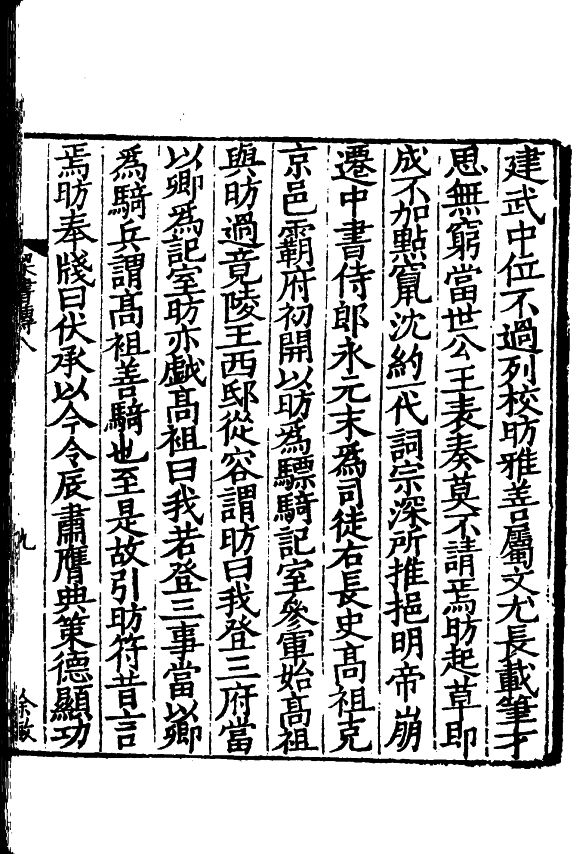 建武中位不過列校昉雅善屬文尤長載筆才
思無窮當世公王表奏莫不請焉昉起草即
成不加點竄沈約一代詞宗深所推挹明帝崩
遷中書侍郎永元末爲司徒右長史高祖克
京邑霸府初開以昉爲驃騎記室參軍始高祖
與昉過竟陵王西邸從容謂昉曰我登三府當
以卿爲記室昉亦戲高祖曰我若登三事當以卿
爲騎兵謂高祖善騎也至是故引昉符昔言
焉昉奉牋曰伏承以今令辰肅膺典策德顯功
梁書傳八
九